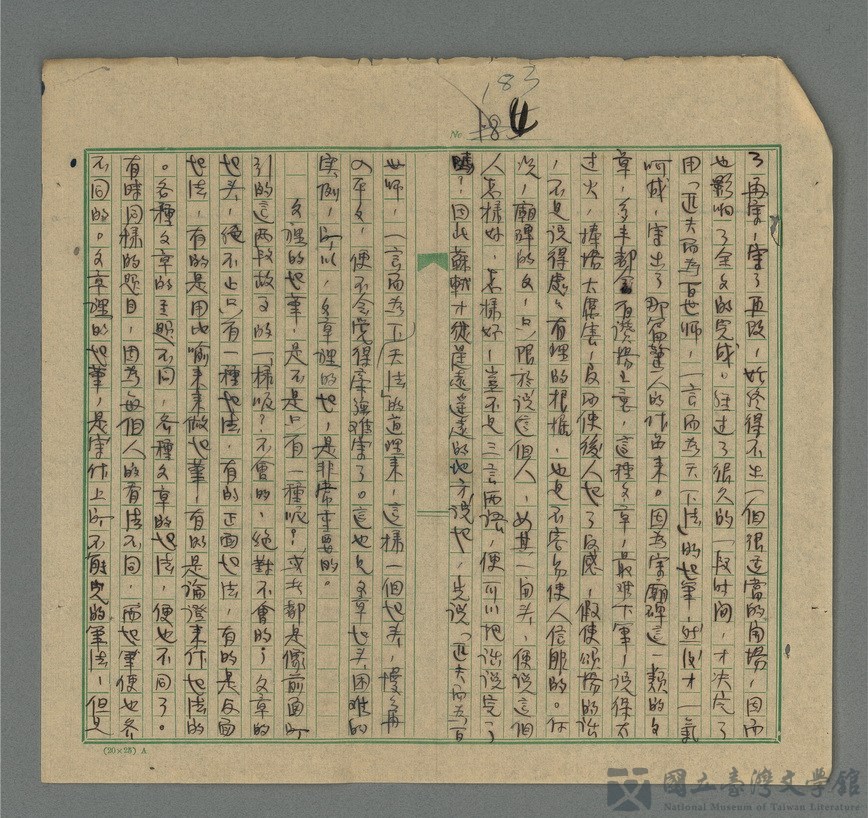 183
No.
了再寫，寫了再改，始終得不出一個很適當的角場，因而
也影响了全文的完成。經过了很久的一段时间，才決定了
用「匹夫而為百世師，一言而為天下法」的起筆，然後才一氣
呵成，寫出了那篇驚人的作品來。因為寫廟碑這一類的文
章，多半都会有讚揚之意，這種文章，最难下筆，说得太
过火，捧揚太厲害，反而使後人起了反感，假使頌揚的話
，不是说得處處有理的根据，也是不容易使人信服的。何
况，廟碑的文，只限於说這個人，如其一角头，便说這個
人怎樣好，怎樣好，豈不是三言两語，便可以把話说完了
嗎？因此蘇軾才從遥遠遥遠的地方说起，先说「匹夫而為百
世師，一言而為天下法」的道理來，這樣一個起头，慢慢再
入平文，便不会覚得牽強难寫了。這也是文章起头困难的
实例，所以，文章裡的起，是非常重要的。
文裡的起筆，是不是只有一種呢？或者都是像前面所
引的這两段故文的一樣呢？不會的，絕對不會的，文章的
起头，绝不止只有一種起法，有的正面起法，有的是反面
起法，有的是用比喻來來做起筆，有的是論證來作起法的
。各種文章的主題不同，各種文章的起法，便也不同了。
有時同樣的题目，因為每個人的看法不同，而起筆便也各
不同的。文章裡的起筆，是寫作上所不能免的筆法，但是
(20×25) A
國立臺灣文學館
National Museum of Taiwan Literature